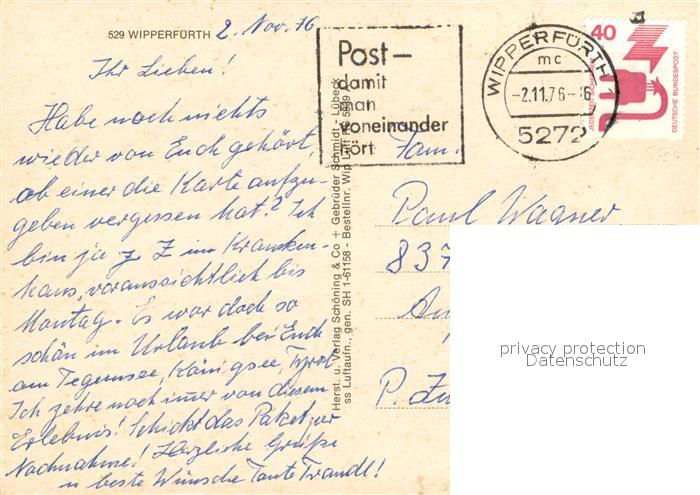 529 WIPPERFÜRTH 2. Nov. 76
Ihr Lieben!
Habe noch nichts
wieder von Euch gehört,
ob einer die Karte aufzu-
geben vergessen hat? Ich
bin ja z Z im Kranken-
haus, voraussichtlich bis
Montag. Es war doch so
schön im Urlaub bei Euch
am Tegernsee, Königsee, Tyrol
Ich zehre noch immer von diesem
Erlebnis! Schickt das Paket per
Nachnahme! Herzliche Grüße
u beste Wünsche Tante Traudl!
Herst. u. Verlag Schöning & Co + Gebrüder Schmidt - Lübeck
ss Luftaufn., gen. SH 1-61158 - Bestellnr. Wip
Post-
damit
man
voneinander
hört
WIPPERFÜRTH
mc
-2.11.76-16
5272
40
DEUTSCHE BUNDESPOST
Fam.
Paul Wagner
837
P.
privacy protection
Datenschutz